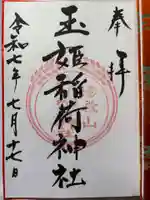 奉拝
玉姫稲荷神社
令和七年七月十七日